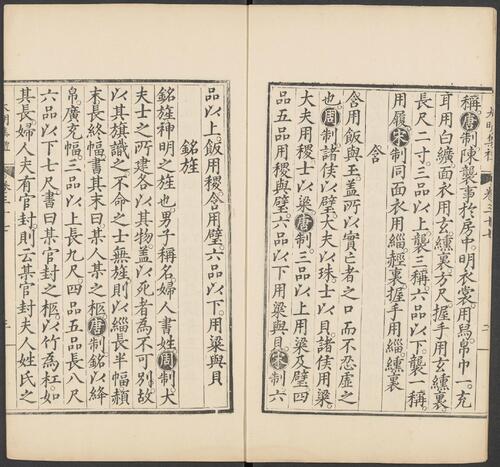 卷三十七
二
稱。唐制陳襲事於房中。明衣裳用舄。帛巾一。充
耳用白纊面衣用玄纁裏方尺。握手用玄纁裏
長尺二寸。三品以上襲三稱六品以下。襲一稱。
用履。宋制同面衣用緇裏握手用緇纁裏
含
含用飯與玉蓋所以實亡者之口而不忍虛之
也。周制諸侯以璧大夫以珠。士以貝諸侯用粱。
大夫用稷士以粱。唐制。三品以上用粱及璧四
品五品用稷與璧。六品以下用粱與貝。宋制六
品以上。飯用稷。含用璧。六品以下。用粱與貝
銘旌
銘旌神明之旌也男子稱名婦人書姓周制大
夫士之所建各以其物蓋以死者為不可別故
以其旗識之不命之士無旌則以緇長半幅赬
末長終幅書其末曰某人某之柩。唐制銘以絳
帛。廣充幅。三品以上長九尺。四品五品長八尺
六品以下七尺書曰某官封之柩。以竹為杠。如
其長婦人夫有官封。則云某官封夫人姓氏之